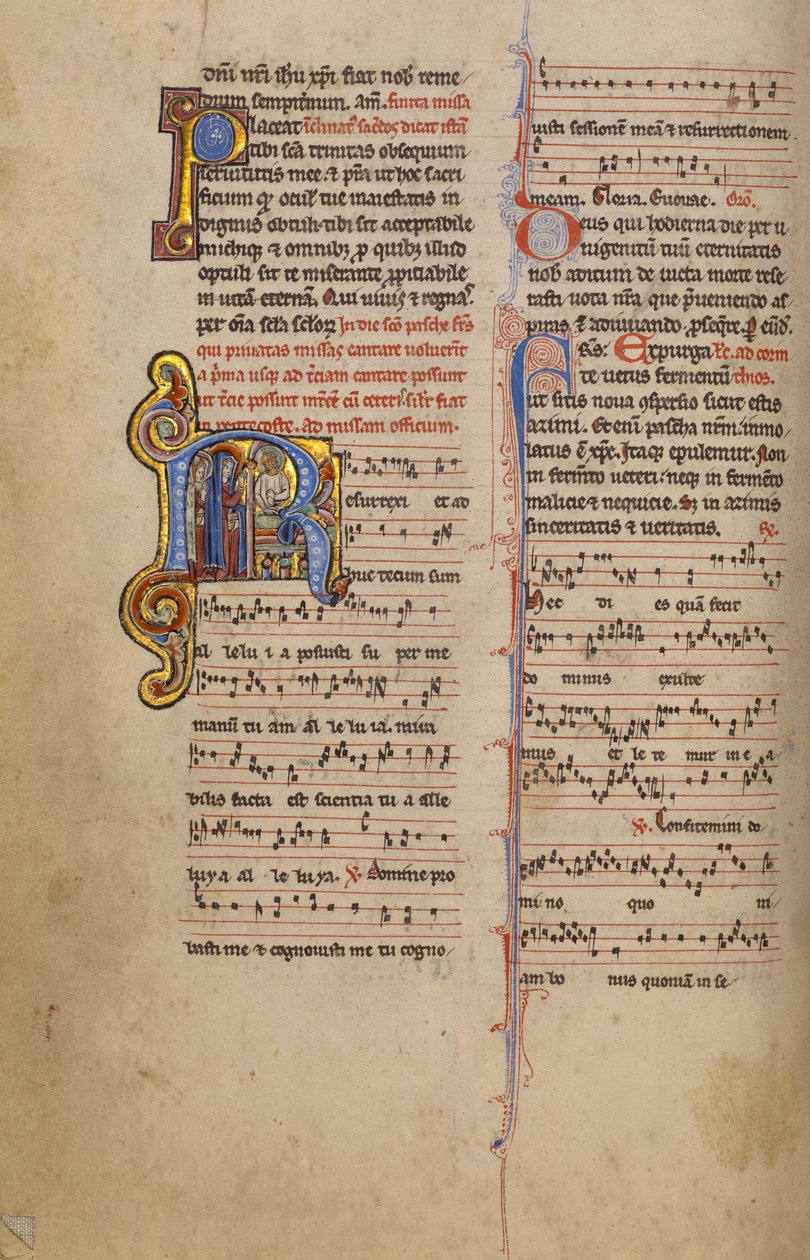 dñi nr̃i ihũ xp̃i fiat nob̃ reme
dium sempit̃num. am̃. finita missa
Placeat ĩclinat᷒ sac̃dos dicat istã
tibi sc̃a trinitas obsequium
seruitutis mee. ⁊ p̃ta ut hoc sacri
ficium qđ oculis tue maiestatis in
dignus obtuli. tibi sit acceptabile
michiqꝫ ⁊ omnibꝫ ꝓ quibꝫ illud
optuli sit te miserante ꝓpitiabile
in uitã eternã. Qui uiuis ⁊ regnas
per om̃a sc̃la sc̃loꝝ In die sc̃o pasche fr̃s
qui priuatas missas cantare uoluerĩt
a p̃ma usqꝫ ad t̃ciam cantare possunt
in pentecoste. ad missam officium.
Resurrexi et ad
huc tecum sum
al le lu i a posuisti su per me
manũ tu am al le lu ia. mira
bilis facta est scientia tu a alle
luya al le luya. ℣. Domine pro
basti me ⁊ cognouisti me tu cogno
uisti sessionẽ meã ⁊ resurrectionem
meam. Gloria. Euouae. Orõ.
Deus qui hodierna die per u
nigenitũ tuũ eternitatis
nob̃ aditum de uicta morte rese
rasti uota nr̃a que p̃ueniendo as
piras. ⁊ã adiuuando ꝓseq̃re. ꝑ eũđ.
Fr̃s: Expurga ad corin
te uetus fermentũ thios.
ut sitis noua ꝯspersio sicut estis
azimi. Etenĩ pascha nr̃m. immo
latus ẽ xp̃c. Itaqꝫ epulemur. Non
in ferm̃to ueteri. neqꝫ in fermẽto
malicie ⁊ nequicie. Sꝫ in azimis
sinceritatis ⁊ ueritatis. ℟.
Hec di es quã fecit
do minus exulte
mus et le te mur in e a
℣. Confitemini do
mi no quo ni
am bo nus quoniã in se